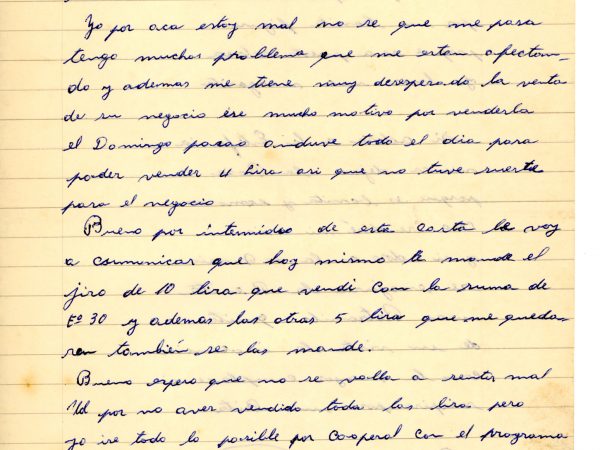 Yo por aca estoy mal no se que me pasa
tengo muchos problema que me estan afectan-
do y ademas me tiene muy desesperado la venta
de su negocio ise mucho motivo por venderla
el Domingo pasao anduve todo el dia para
poder vender 4 lira asi que no tuve suerte
para el negocio
Bueno por intermidio de esta carta le voy
a comunicar que hoy mismo te mande el
jiro de 10 lira que vendi con la suma de
Eº 30 y ademas las otras 5 lira que me queda-
ron también se las mande.
Bueno espero que no se valla a sentir mal
Ud por no aver vendido todas las lira pero
yo ire todo lo posible por cooperal con el programa